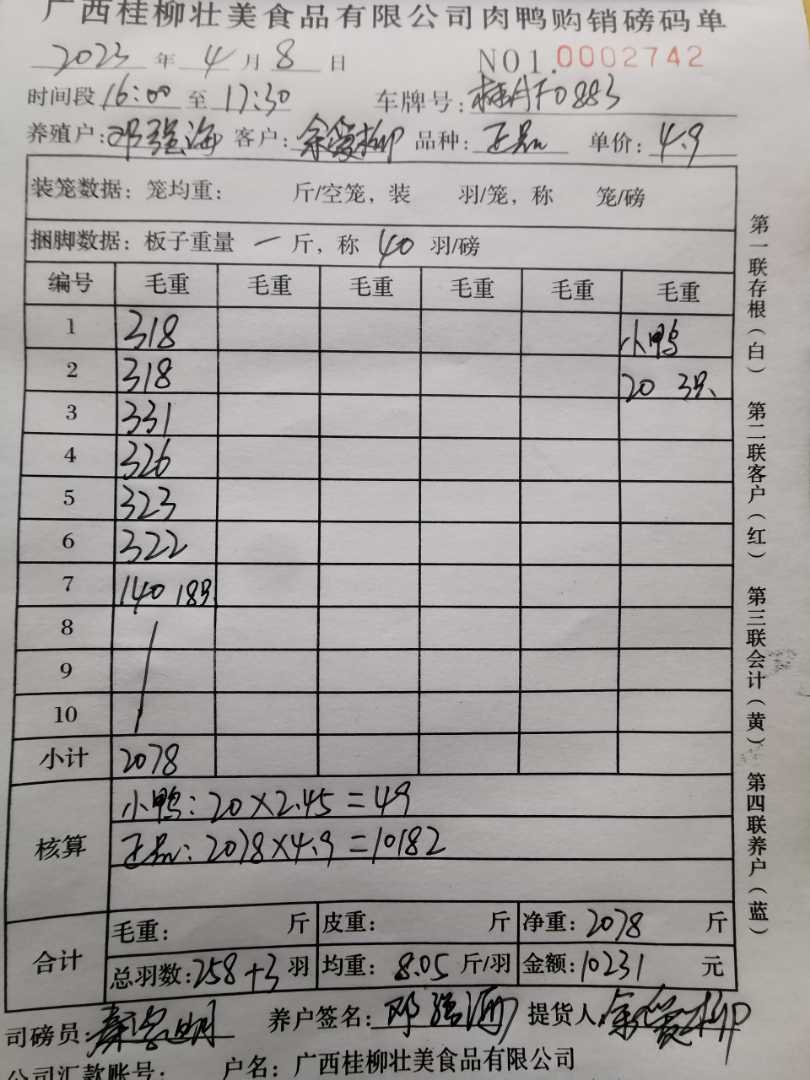 广西桂柳壮美食品有限公司肉鸭购销磅码单
2023 年 4 月 8 日 NO1.0002742
时间段 16:00 至 17:30 车牌号: 桂AF0883
养殖户: 邓强海 客户: 余爱柳 品种: 正品 单价: 4.9
装笼数据: 笼均重: 斤/空笼, 装 羽/笼, 称 笼/磅
捆脚数据: 板子重量 一 斤, 称 40 羽/磅
编号 毛重 毛重 毛重 毛重 毛重 毛重
1 318 小鸭
2 318 20 3只
3 331
4 326
5 323
6 322
7 140 18只
8
9
10
小计 2078
核算 小鸭: 20×2.45=49
正品: 2078×4.9=10182
合计 毛重: 斤 皮重: 斤 净重: 2078 斤
总羽数: 258+3 羽 均重: 8.05 斤/羽 金额: 10231 元
司磅员: 养户签名: 邓强海 提货人: 余爱柳
公司汇款账号: 户名: 广西桂柳壮美食品有限公司
第一联存根(白) 第二联客户(红) 第三联会计(黄) 第四联养户(蓝)